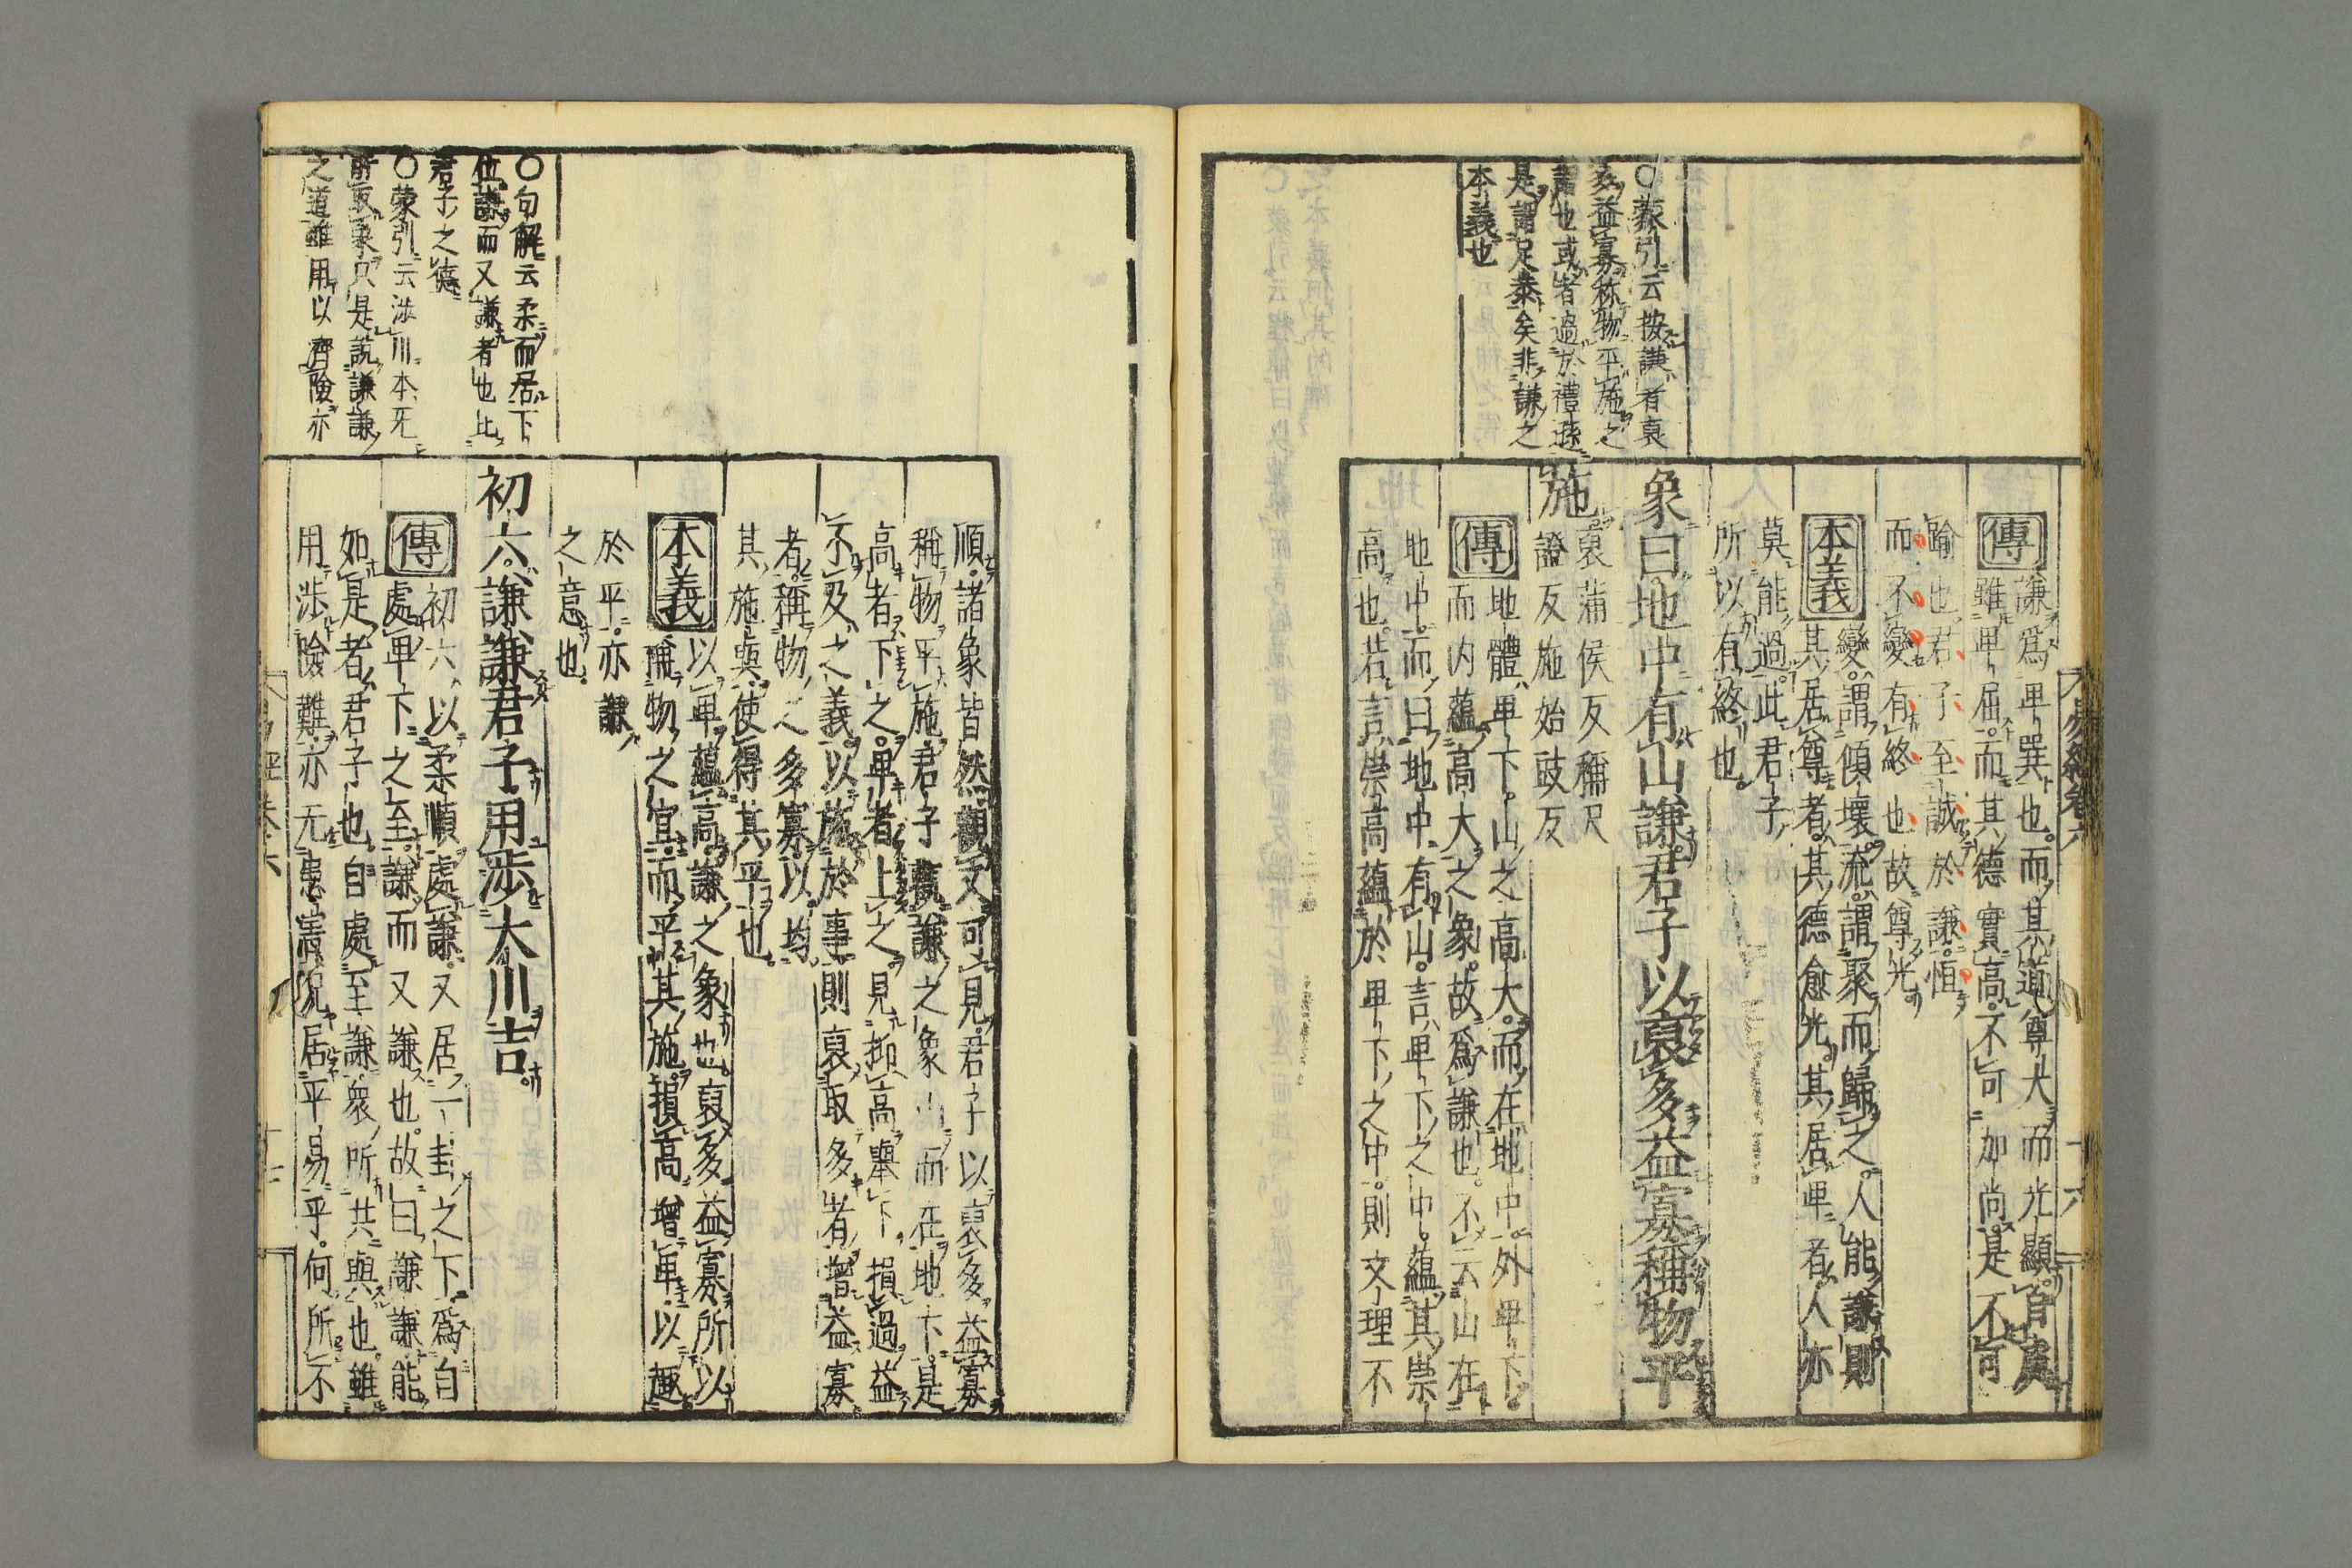 易經卷六
十六
○蒙引云按謙者裒
多益寡称物平施之
謂也或者過於禮遜
是謂足恭矣非謙之
本義也
傳
謙爲卑巽也。而其道尊大而光顯。自處
雖卑屈。而其德實高。不可加尚。是不可
踰也。君子至誠於謙。恒
而不變有終也故尊光
本義
變。謂傾壞。流。謂聚而歸之。人能謙則
其居尊者。其德愈光。其居卑者。人亦
莫能過。此君子
所以有終也。
象曰地中有山謙。君子以裒多益寡稱物平
施
裒蒲侯反稱尺
證反施始豉反
傳
地體卑下。山之高大。而在地中。外卑下。
而内蘊高大之象。故爲謙也。不云山在
地中。而曰地中有山。言卑下之中。蘊其崇
高也。若言崇高蘊於卑下之中。則文理不
順。諸象皆然。觀文可見。君子以裒多益寡
稱物平施。君子觀謙之象山而在地下。是
高者下之。卑者上之。見抑高舉下。損過益
不及之義。以施於事則裒取多者增益寡
者。稱物之多寡以均
其施與。使得其平也。
本義
以卑蘊高。謙之象也。裒多益寡。所以
稱物之宜。而平其施。損高增卑。以趣
於平。亦謙
之意也。
○句解云柔而居下
位謙而又謙者也此
君子之德
○蒙引云渉川本无
所取象只是説謙謙
之道雖用以濟險亦
初六。謙謙君子。用渉大川。吉。
傳
初六以柔順處謙。又居一卦之下。爲自
處卑下之至。謙而又謙也。故曰謙謙。能
如是者。君子也。自處至謙。衆所共與也。雖
用渉險難。亦无患害。況居平易乎。何所不